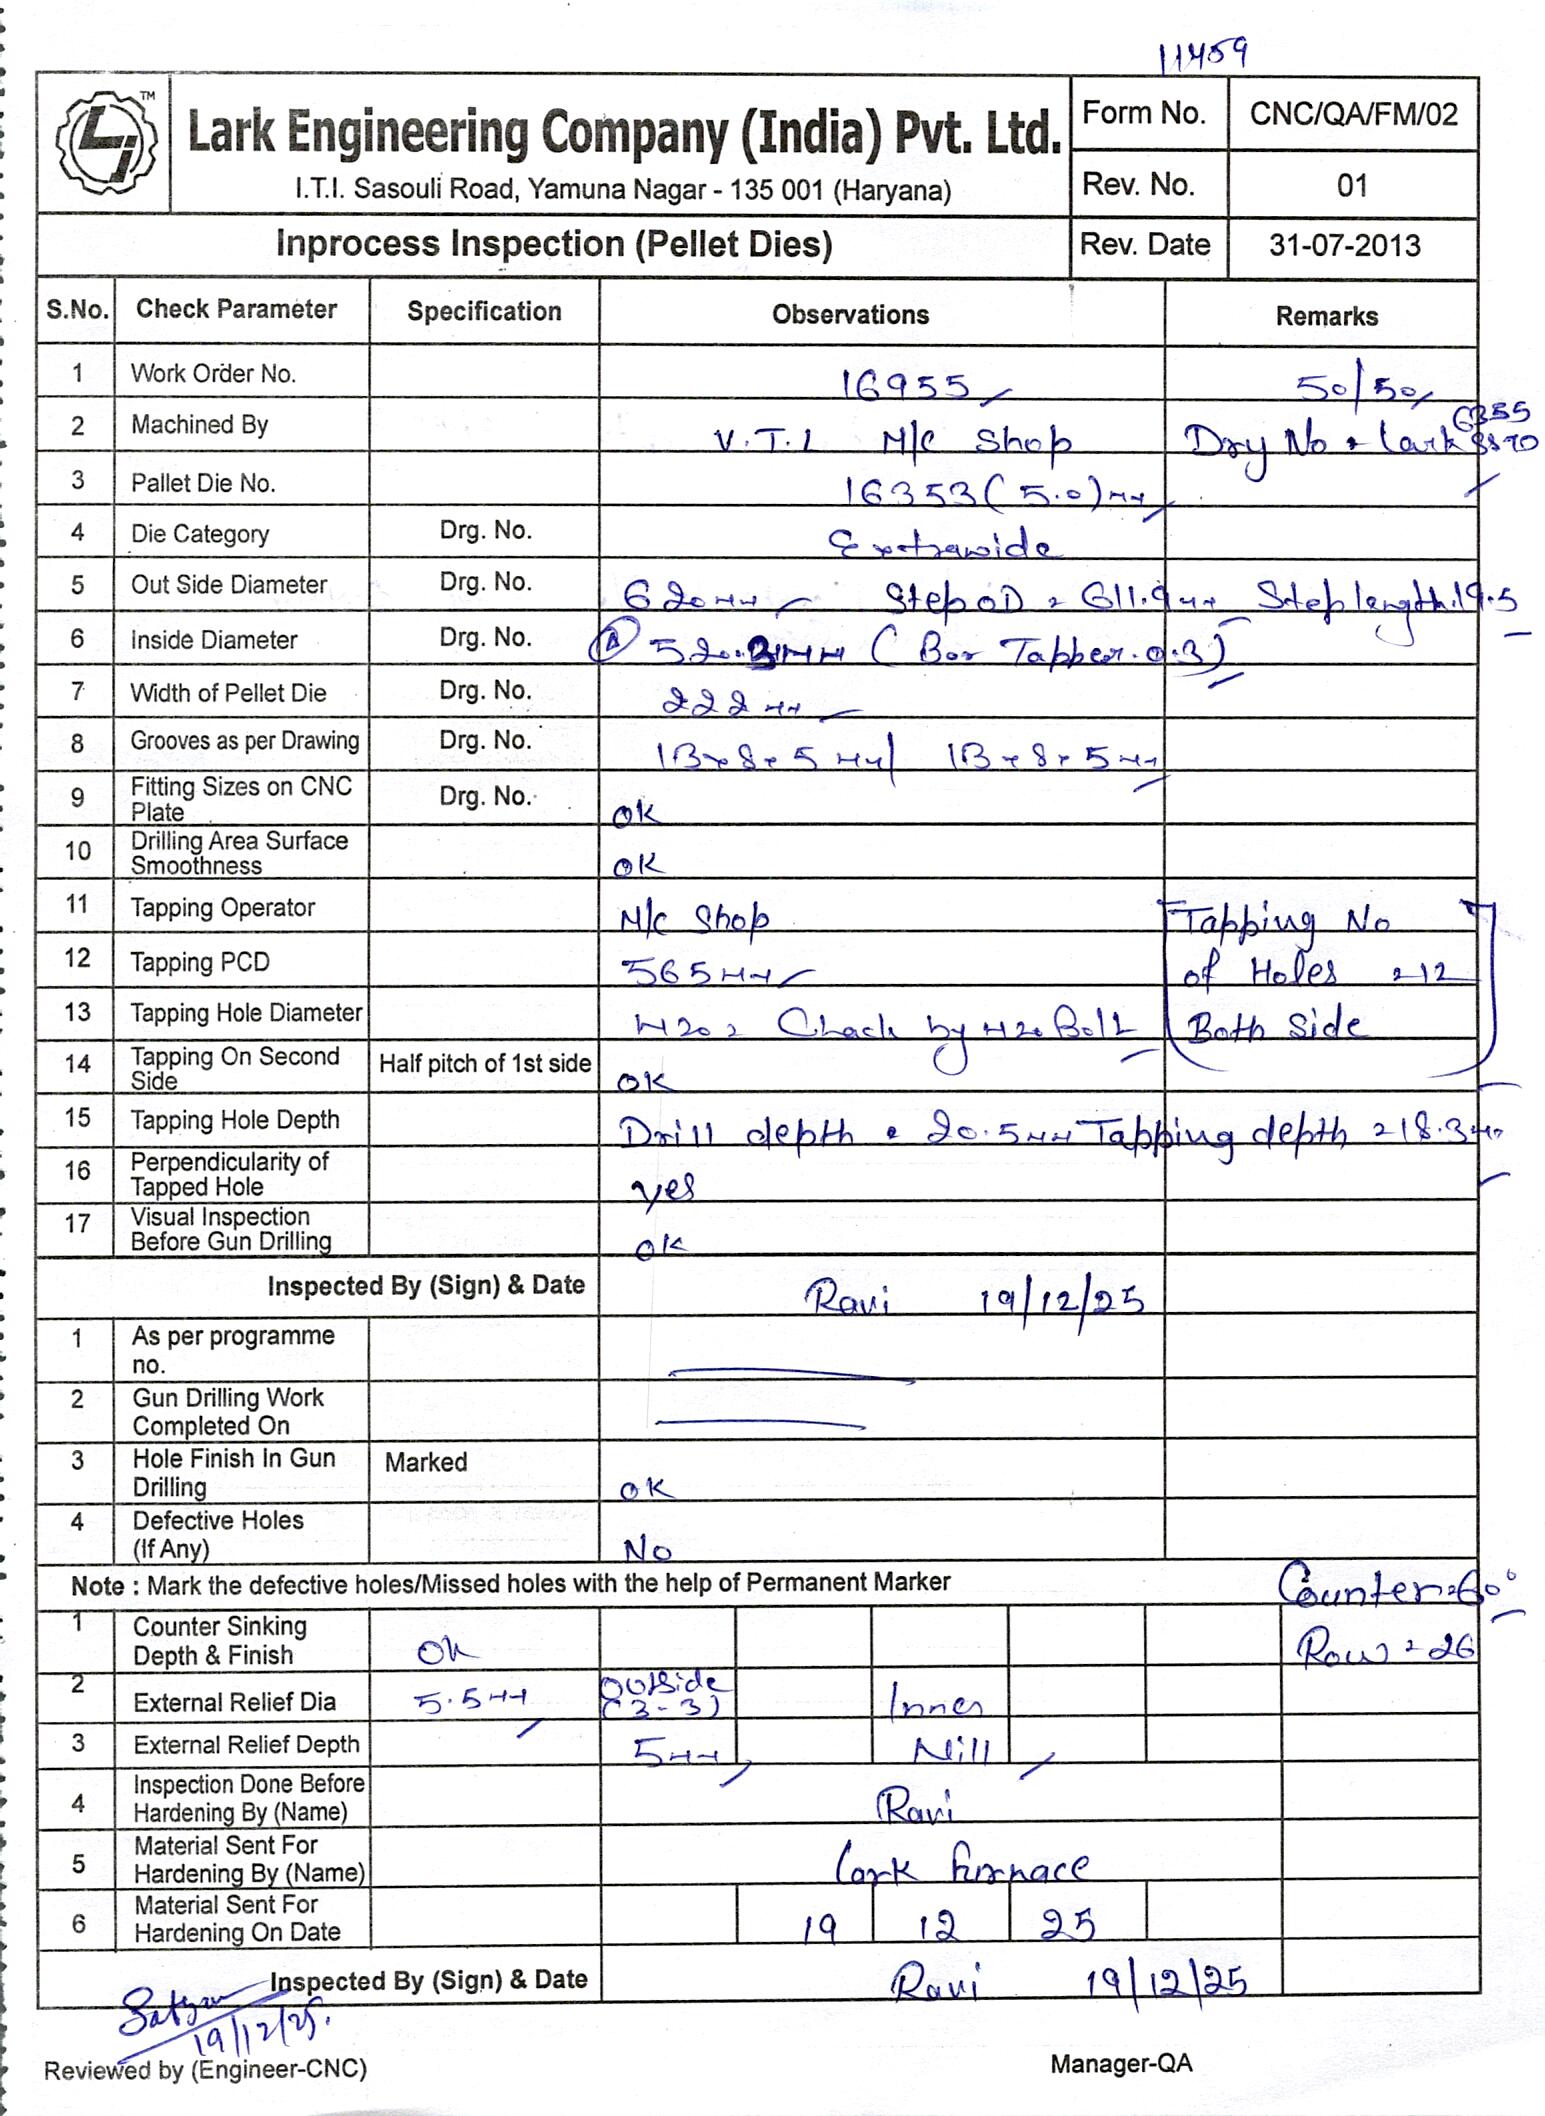 11459
TM
Lark Engineering Company (India) Pvt. Ltd.
I.T.I. Sasouli Road, Yamuna Nagar - 135 001 (Haryana)
Form No. CNC/QA/FM/02
Rev. No. 01
Inprocess Inspection (Pellet Dies) Rev. Date 31-07-2013
S.No. Check Parameter Specification Observations Remarks
1 Work Order No. 16955 50/50
2 Machined By V.T.L M/C Shop Drg No = Lark 6355
3 Pallet Die No. 16353 (5.0) mm
4 Die Category Drg. No. Extrawide
5 Out Side Diameter Drg. No. 620mm Step OD = 611.9mm Step length.19.5
6 Inside Diameter Drg. No. A 520.3mm (Bor Tapper.0.3)
7 Width of Pellet Die Drg. No. 222mm
8 Grooves as per Drawing Drg. No. 13x8x5mm/ 13x8x5mm
9 Fitting Sizes on CNC Plate Drg. No. ok
10 Drilling Area Surface Smoothness ok
11 Tapping Operator M/C Shop Tapping No
12 Tapping PCD 565mm of Holes =12
13 Tapping Hole Diameter M20 = Chack by M20 Bolt Both Side
14 Tapping On Second Side Half pitch of 1st side ok
15 Tapping Hole Depth Drill depth = 20.5mm Tapping depth =18.3mm
16 Perpendicularity of Tapped Hole yes
17 Visual Inspection Before Gun Drilling ok
Inspected By (Sign) & Date Ravi 19/12/25
1 As per programme no.
2 Gun Drilling Work Completed On
3 Hole Finish In Gun Drilling Marked ok
4 Defective Holes (If Any) No
Note : Mark the defective holes/Missed holes with the help of Permanent Marker Counter=60°
1 Counter Sinking Depth & Finish ok Row = 26
2 External Relief Dia 5.5mm Outside (3-3) Inner
3 External Relief Depth 5mm Nill
4 Inspection Done Before Hardening By (Name) Ravi
5 Material Sent For Hardening By (Name) Lark furnace
6 Material Sent For Hardening On Date 19 12 25
Inspected By (Sign) & Date Ravi 19/12/25
19/12/25.
Reviewed by (Engineer-CNC) Manager-QA